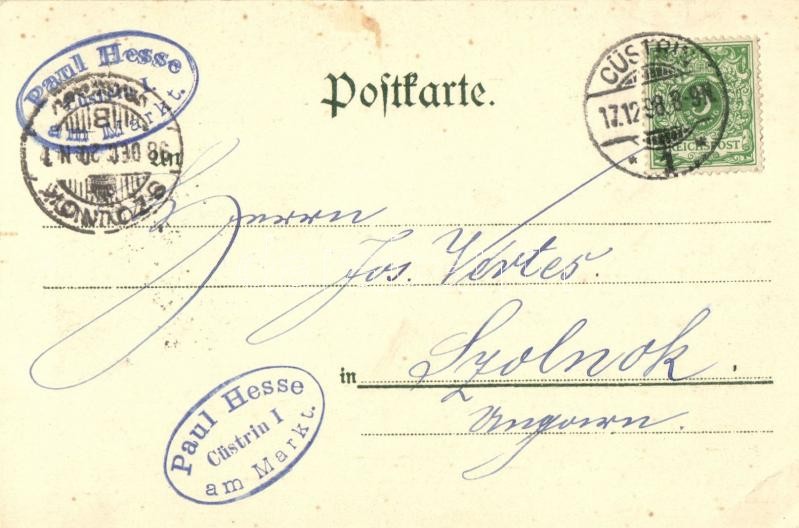 Paul Hesse
Cüstrin I
am Markt.
Postkarte.
CÜSTRIN
17.12.98.8-9N
* 1 *
REICHSPOST
SZOLNOK
98 DEC 20 N 7
Herrn
Jos. Vértes.
in Szolnok,
Ungarn.
Paul Hesse
Cüstrin I
am Markt.